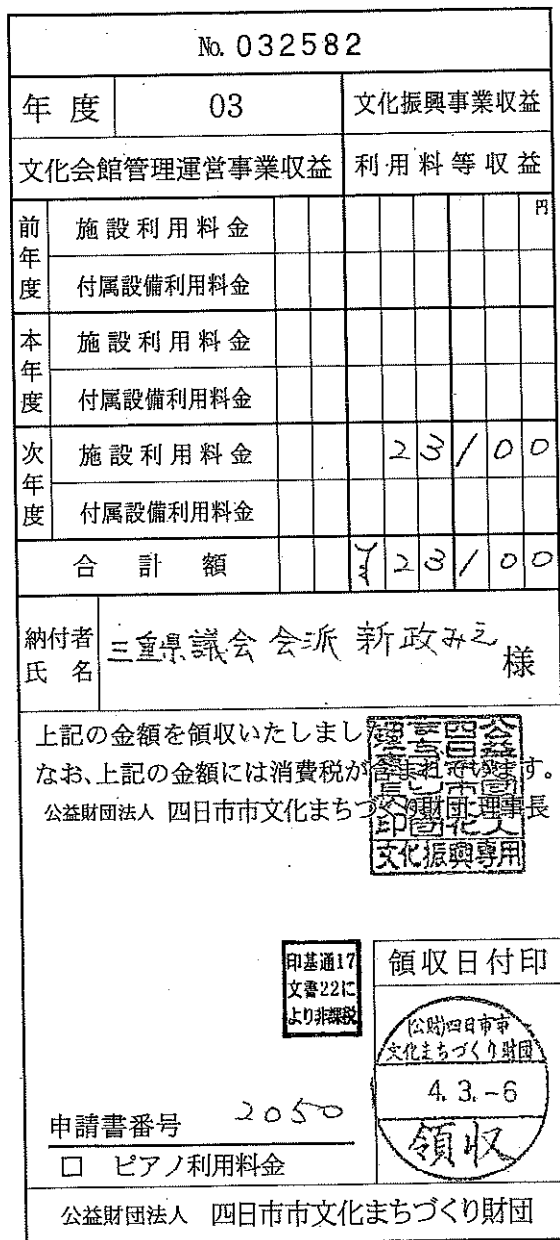 No. 032582
年度 03 文化振興事業収益
文化会館管理運営事業収益 利用料等収益
前年度 施設利用料金 円
付属設備利用料金
本年度 施設利用料金
付属設備利用料金
次年度 施設利用料金 23100
付属設備利用料金
合計額 ¥23100
納付者氏名 三重県議会 会派 新政みえ 様
上記の金額を領収いたしました
なお、上記の金額には消費税が含まれています。
公益財団法人 四日市市文化まちづくり財団理事長
文化振興専用
印基通17
文書22に
より非課税
領収日付印
(公財)四日市市
文化まちづくり財団
4.3.-6
領収
申請書番号 2050
□ ピアノ利用料金
公益財団法人 四日市市文化まちづくり財団